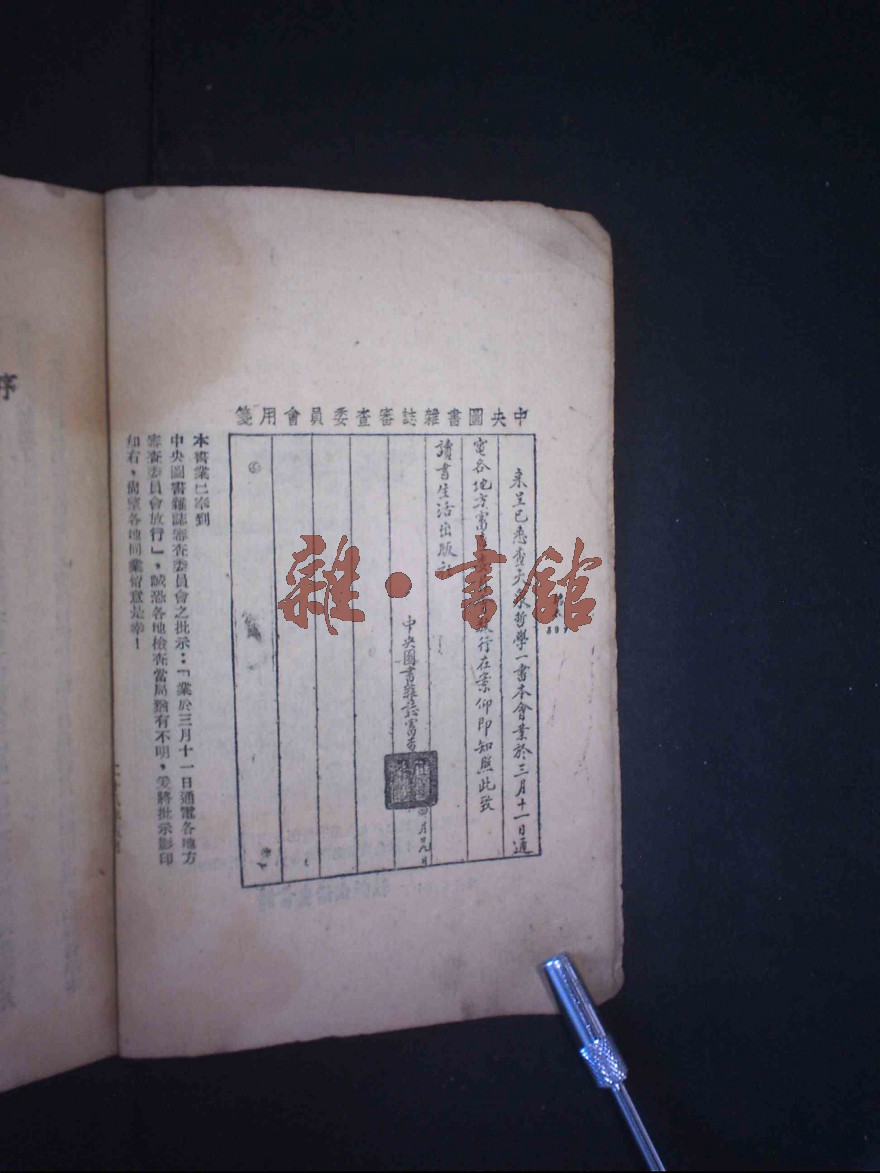 中央圖書雜誌審查委員會用箋
來呈已悉查大眾哲學一書本會業於三月十一日通
電各地方審放行在案仰即知照此致
讀書生活出版社
中央圖書雜誌審查
四月廿九日
本書業已奉到
中央圖書雜誌審查委員會之批示：「業於三月十一日通電各地方
審查委員會放行」，誠恐各地檢查當局猶有不明，爰將批示影印
如右，尚望各地同業留意是幸！
序
雜·書館